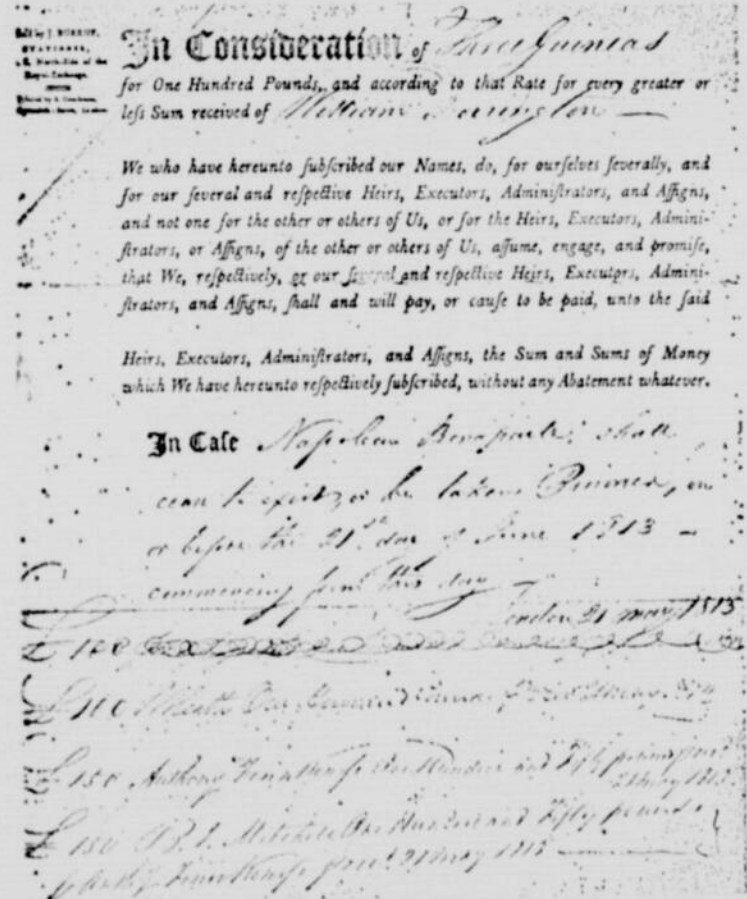 Sold by J. BURRUP,
STATIONER,
North-Side of the
Royal-Exchange.
In Consideration of Three Guineas
for One Hundred Pounds, and according to that Rate for every greater or
leſs Sum received of William
We who have hereunto ſubſcribed our Names, do, for ourſelves ſeverally, and
for our ſeveral and reſpective Heirs, Executors, Adminiſtrators, and Aſſigns,
and not one for the other or others of Us, or for the Heirs, Executors, Admini-
ſtrators, or Aſſigns, of the other or others of Us, aſſume, engage, and promiſe,
that We, reſpectively, or our ſeveral and reſpective Heirs, Executors, Admini-
ſtrators, and Aſſigns, ſhall and will pay, or cauſe to be paid, unto the ſaid
Heirs, Executors, Adminiſtrators, and Aſſigns, the Sum and Sums of Money
which We have hereunto reſpectively ſubſcribed, without any Abatement whatever.
In Caſe Napoleon Bonaparte shall
cease to exist, or be taken Prisoner, on
or before the 21st day of June 1813 —
commencing from this day —
London 21 May 1813
£ 100
£ 100 One Hundred
£ 150 Anthony One Hundred and Fifty pounds
21 May 1813
£ 150 Mitchell One Hundred and Fifty pounds
21 May 1813